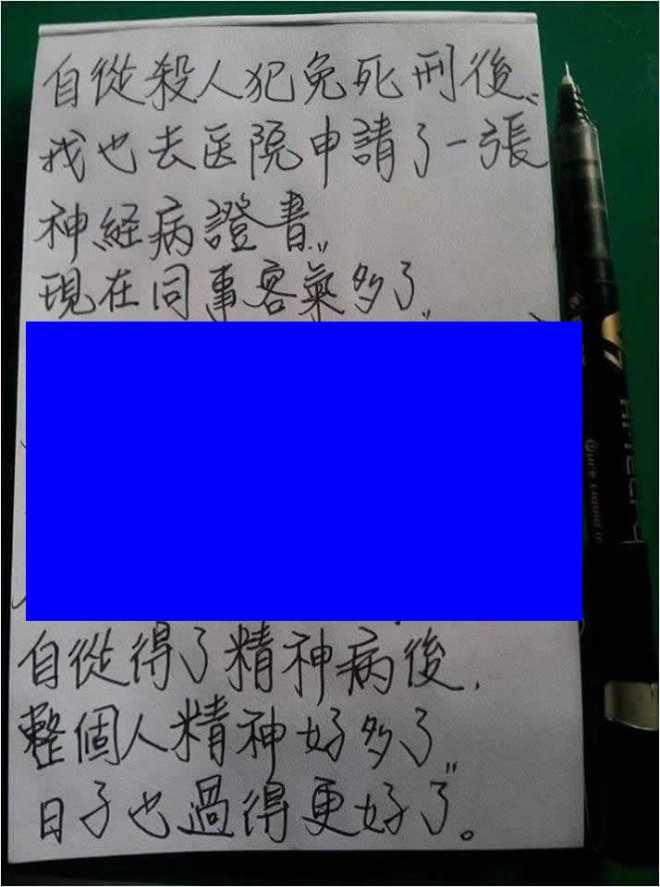 自從殺人犯免死刑後〃
我也去医院申請了一張
神経病證書〃
現在同事客氣多了〃
自從得了精神病後,
整個人精神好多了〃
日子也過得更好了。